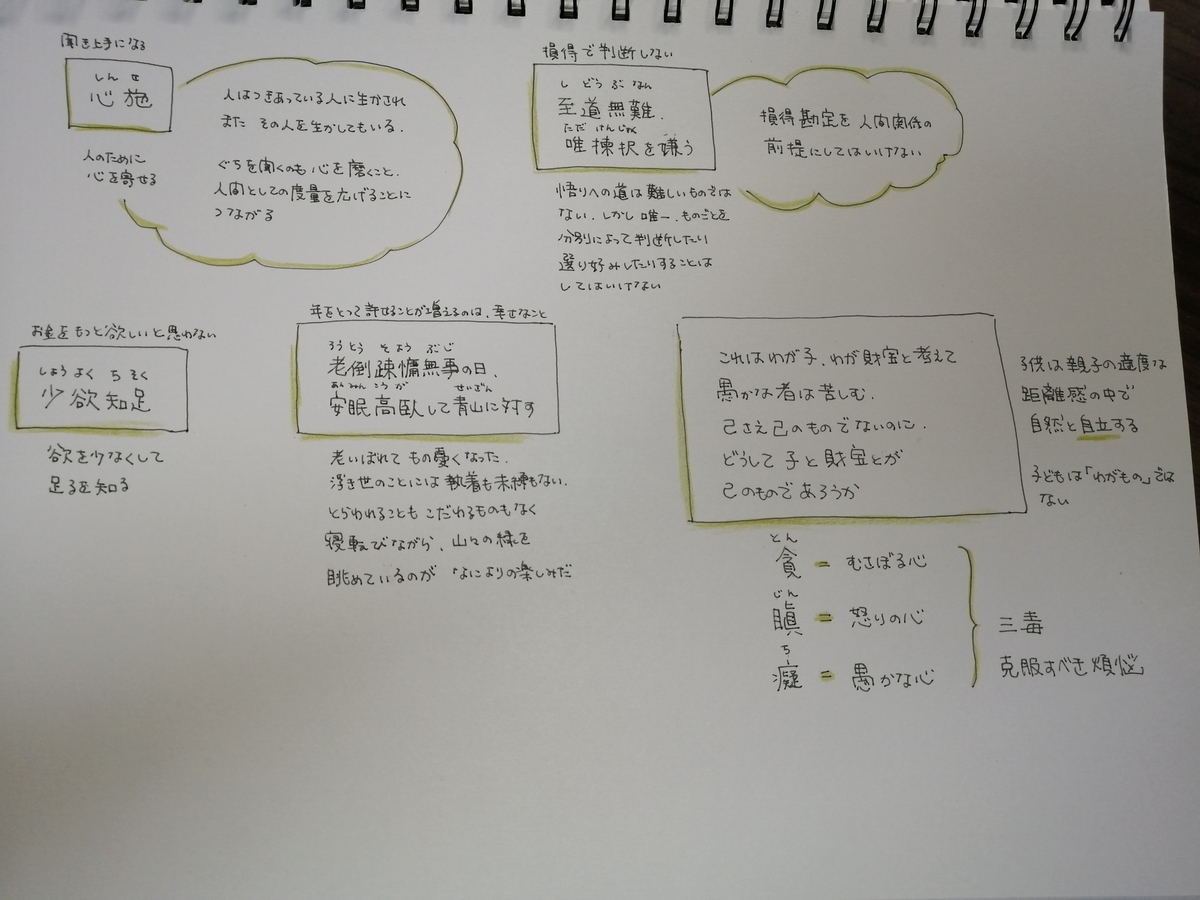 聞き上手になる
しんせ
心施
人のために
心を寄せる
人はつきあっている人に生かされ
また その人を生かしてもいる.
ぐちを聞くのも心を磨くこと.
人間としての度量を広げることに
つながる
損得で判断しない
し どう ぶ なん
至道無難.
ただ けんじゃく
唯揀択を嫌う
悟りへの道は難しいものでは
ない. しかし 唯一、ものごとを
分別によって判断したり
選り好みしたりすることは
してはいけない
損得勘定を人間関係の
前提にしてはいけない
お金をもっと欲しいと思わない
しょう よく ち そく
少欲知足
欲を少なくして
足るを知る
年をとって許せることが増えるのは、幸せなこと
ろう とう そ よう ぶ じ
老倒疎慵無事の日、
あんみん こう が せいざん
安眠高臥して青山に対す
老いぼれて もの憂くなった.
浮き世のことには執着も未練もない.
とらわれることも こだわるものもなく
寝転びながら、山々の緑を
眺めているのが なによりの楽しみだ
これはわが子、わが財宝と考えて
愚かな者は苦しむ.
己さえ己のものでないのに.
どうして 子と財宝とが
己のものであろうか
子供は親子の適度な
距離感の中で
自然と自立する
子どもは「わがもの」では
ない
とん
貪 = むさぼる心
じん
瞋 = 怒りの心
ち
癡 = 愚かな心
三毒
克服すべき煩悩